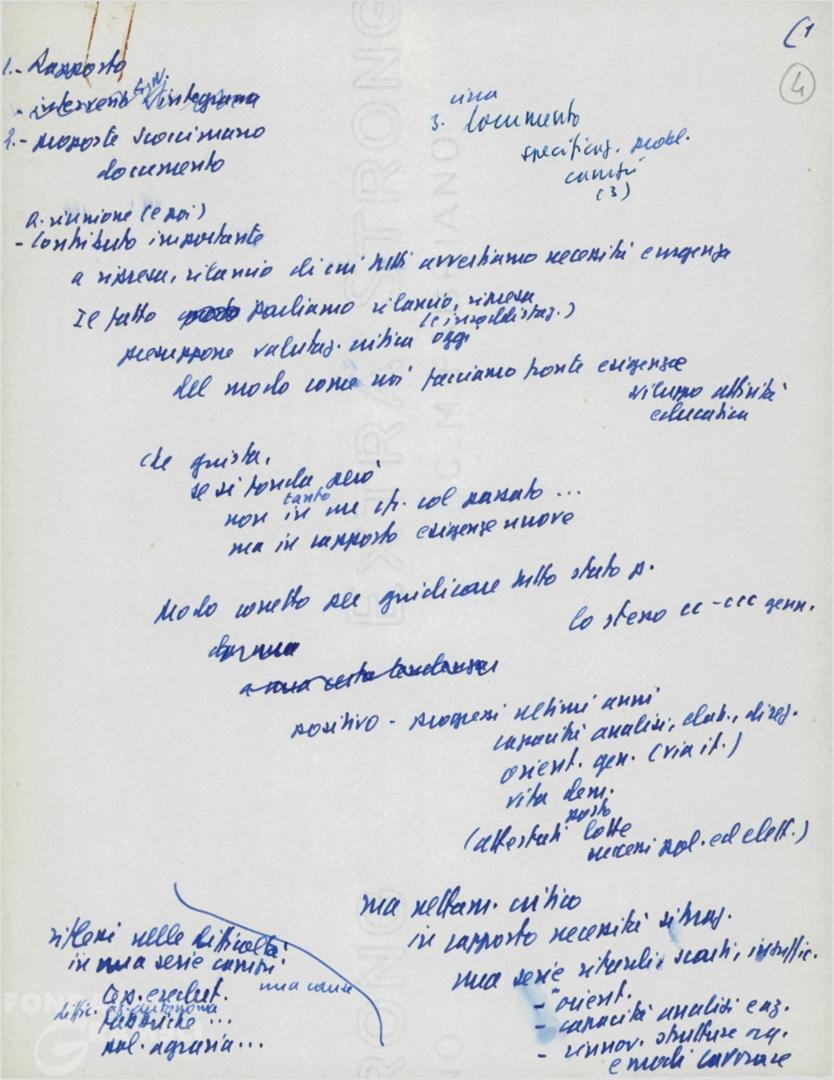 (1
4
1.- Rapporto
- interventi integrano
2.- proposte Scoccimarro
documento
circa
3. documento
specificaz. probl.
campi
(3)
a. riunione (e poi)
- Contributo importante
a ripresa, rilancio di cui tutti avvertiamo necessità emergenza
Il fatto parliamo rilancio, ripresa
(e insoddisfaz.)
presuppone valutaz. critica oggi
del modo come noi facciamo fronte esigenze
sviluppo attività
educativa
che giusta,
se si fonda però
non tanto in col passato ...
ma in rapporto esigenze nuove
Modo corretto per giudicare tutto stato p.
lo stesso cc-ccc genn.
a una certa tendenza
positivo - progressi ultimi anni
capacità analisi, elab., direz.
orient. gen. (via it.)
vita dem.
posto
(attestati lotte
successi pol. ed elett.)
ma nettam. critico
in rapporto necessità situaz.
una serie ritardi, scarti, insuffic.
- orient.
- capacità analisi ed az.
- rinnov. strutture org.
e modi lavorare
riflessi nelle difficoltà
in una serie campi
una causa
diffic. az. autonoma
fabbriche ...
pol. agraria ...